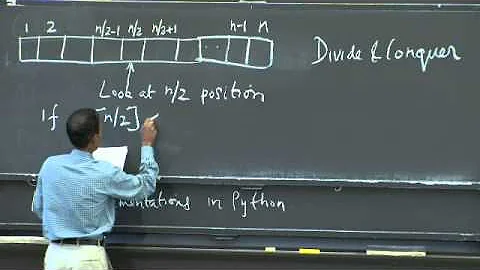 1 2 n/2-1 n/2 n/2+1 n-1 n
Divide & Conquer
Look at n/2 position
If [n/2] <
in Python